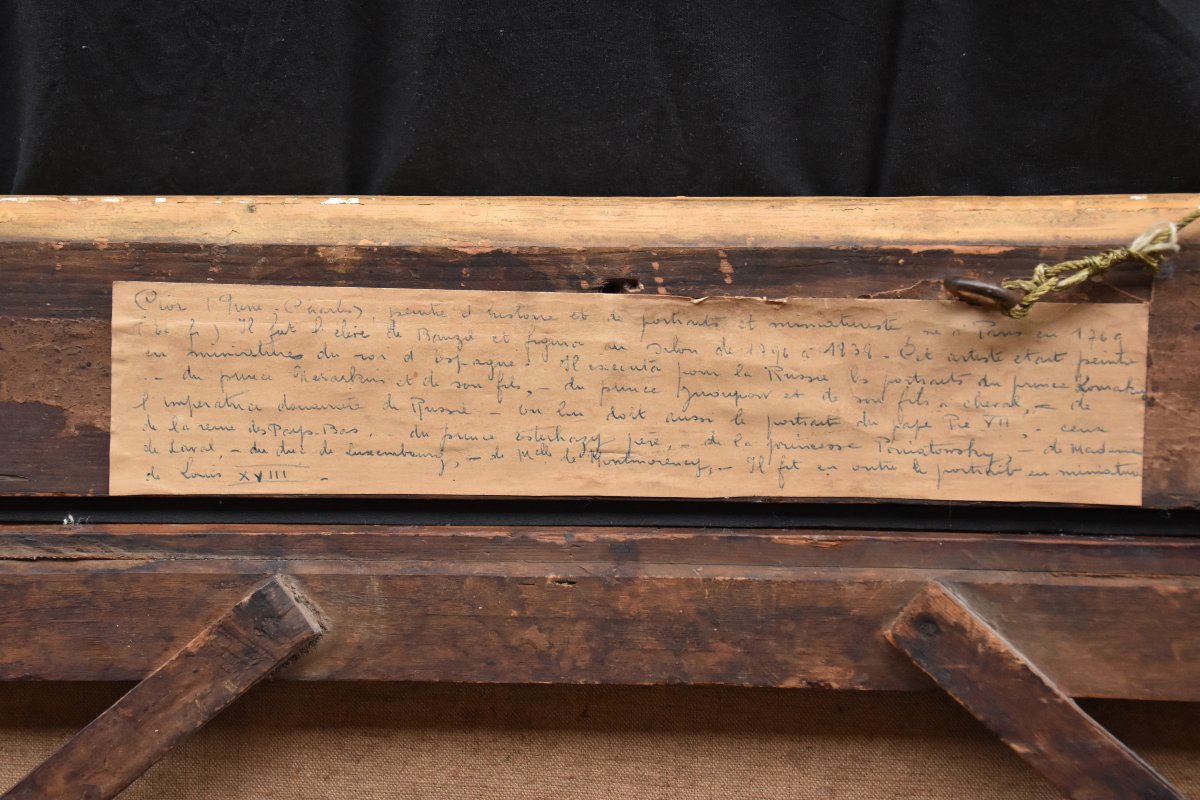 Cior (Pierre, Charles), peintre d'histoire et de portraits et miniaturiste né à Paris en 1769
(Ec. fr) Il fut l'élève de Bauzil et figura au Salon de 1796 à 1838. Cet artiste était peintre
en miniatures du roi d'Espagne. Il exécuta pour la Russie les portraits du prince
du prince et de son fils, – du prince et de son fils à cheval, – de
l'impératrice douairière de Russie – on lui doit aussi le portrait du pape Pie VII, – ceux
de la reine des Pays-Bas, – du prince Esterhazy père, – de la princesse Poniatowsky, – de Madame
de Laval, – du duc de Luxembourg, – de Melle de Montmorency, – Il fit en outre le portrait en miniature
de Louis XVIII –